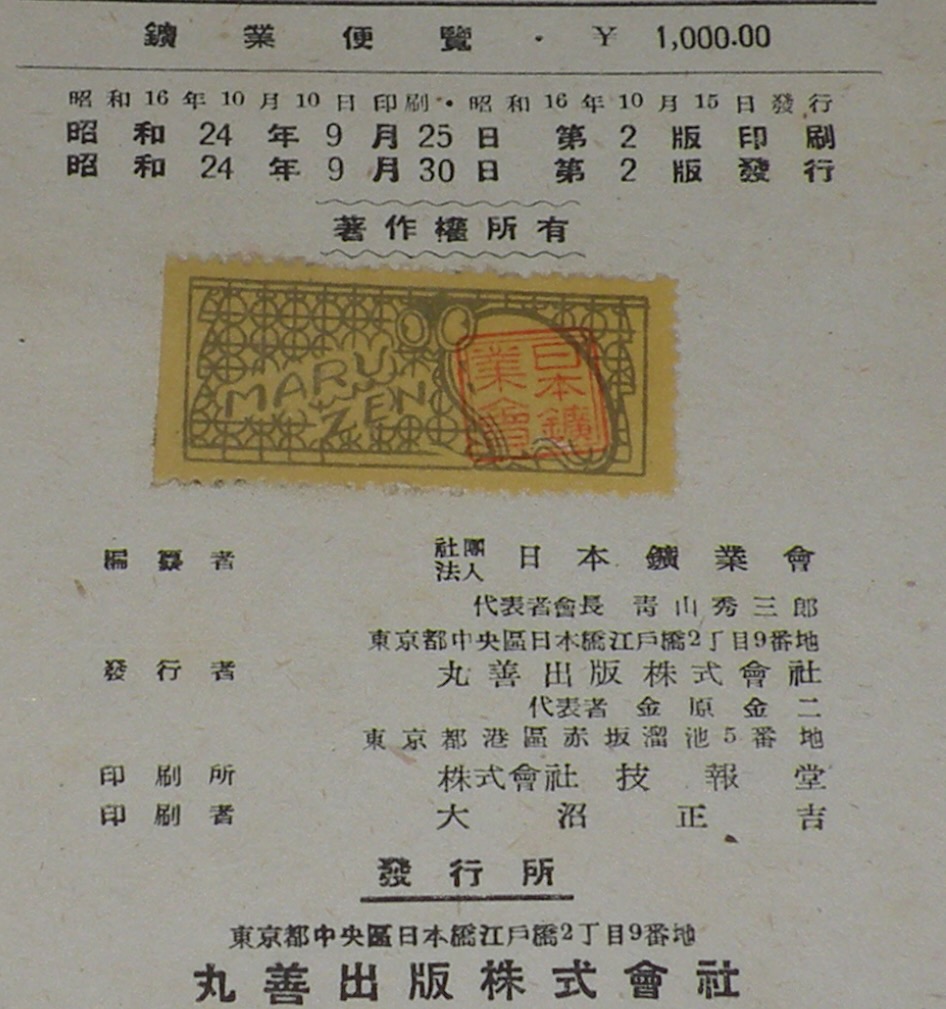 鑛業便覽・￥ 1,000.00
昭和16年10月10日印刷・昭和16年10月15日發行
昭和24年9月25日 第2版印刷
昭和24年9月30日 第2版發行
著作權所有
MARU
ZEN
日本鑛
業會
編纂者 社團法人 日本鑛業會
代表者會長 靑山秀三郎
東京都中央區日本橋江戶橋2丁目9番地
發行者 丸善出版株式會社
代表者 金原金二
東京都港區赤坂溜池5番地
印刷所 株式會社 技報堂
印刷者 大沼正吉
發行所
東京都中央區日本橋江戶橋2丁目9番地
丸善出版株式會社